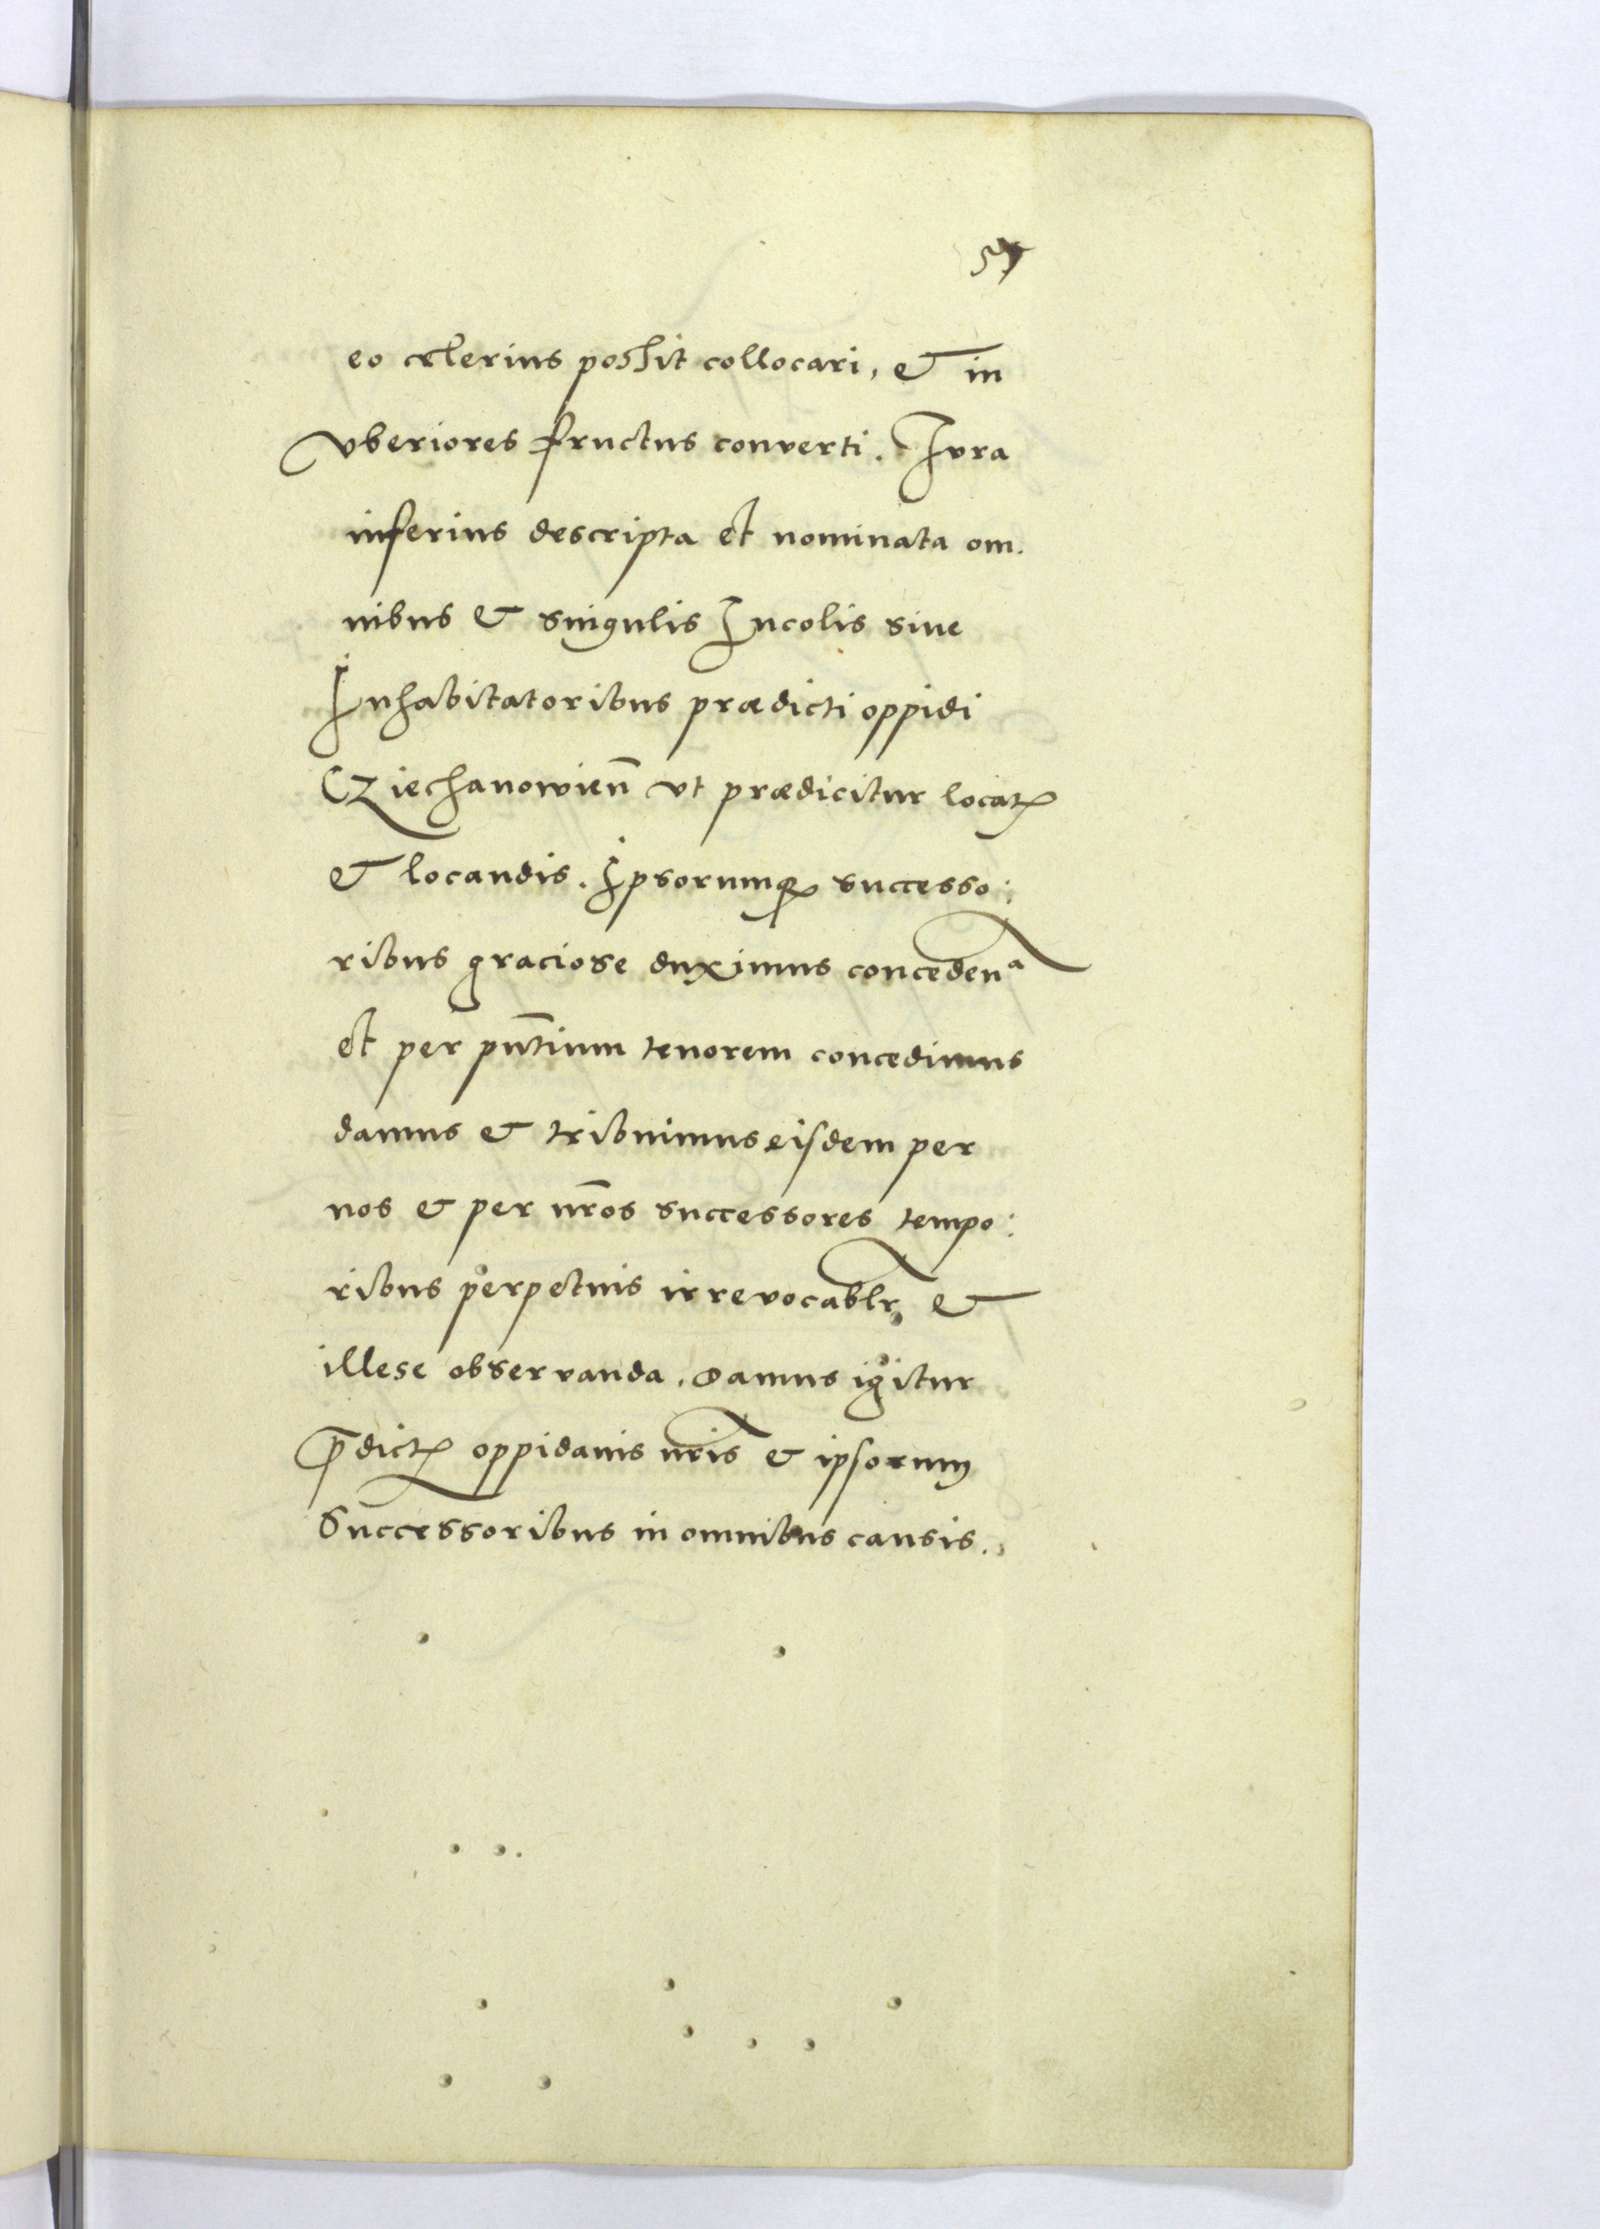 eo celerius possit collocari, et in
vberiores fructus conuerti. Iura
inferius descripta et nominata om.
nibus et singulis Incolis siue
Inhabitatoribus prædicti oppidi
Cziechanowien̄ vt prædicitur locatꝫ
et locandis. Ipsorumqꝫ successo:
ribus graciose duximus conceden^a
et per pn̄tium tenorem concedimus
damus et tribuimus eisdem per
nos et per nr̄os successores tempo:
ribus perpetuis irreuocablr et
illese obseruanda. Damus igitur
p̄dictꝫ oppidanis nr̄is et ipsorum
Successoribus in omnibus causis.,